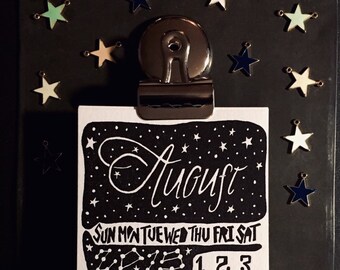 August
SUN MON TUE WED THU FRI SAT
1 2 3